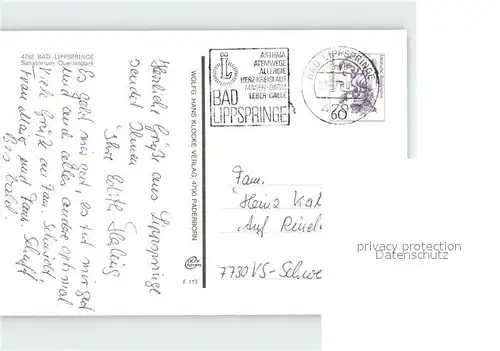 4792 BAD LIPPSPRINGE
Sanatorium Quellenpark
Herzliche Grüße aus Lippspringe
sendet Ihnen
Ihre Edith
Es geht mir gut, es tut mir gut
und auch alles andere optimal
Viele Grüße an Fam. Schmidt,
Frau Maier und Fam. Schöpf
Bis bald
WOLFG. HANS KLOCKE VERLAG, 4790 PADERBORN
F 115
ASTHMA
ATEMWEGE
ALLERGIE
HERZ-KREISLAUF
MAGEN-DARM
LEBER-GALLE
BAD
LIPPSPRINGE
BAD LIPPSPRINGE
60
Fam.
Heinz
Auf
7730 VS-Schwe
privacy protection
Datenschutz